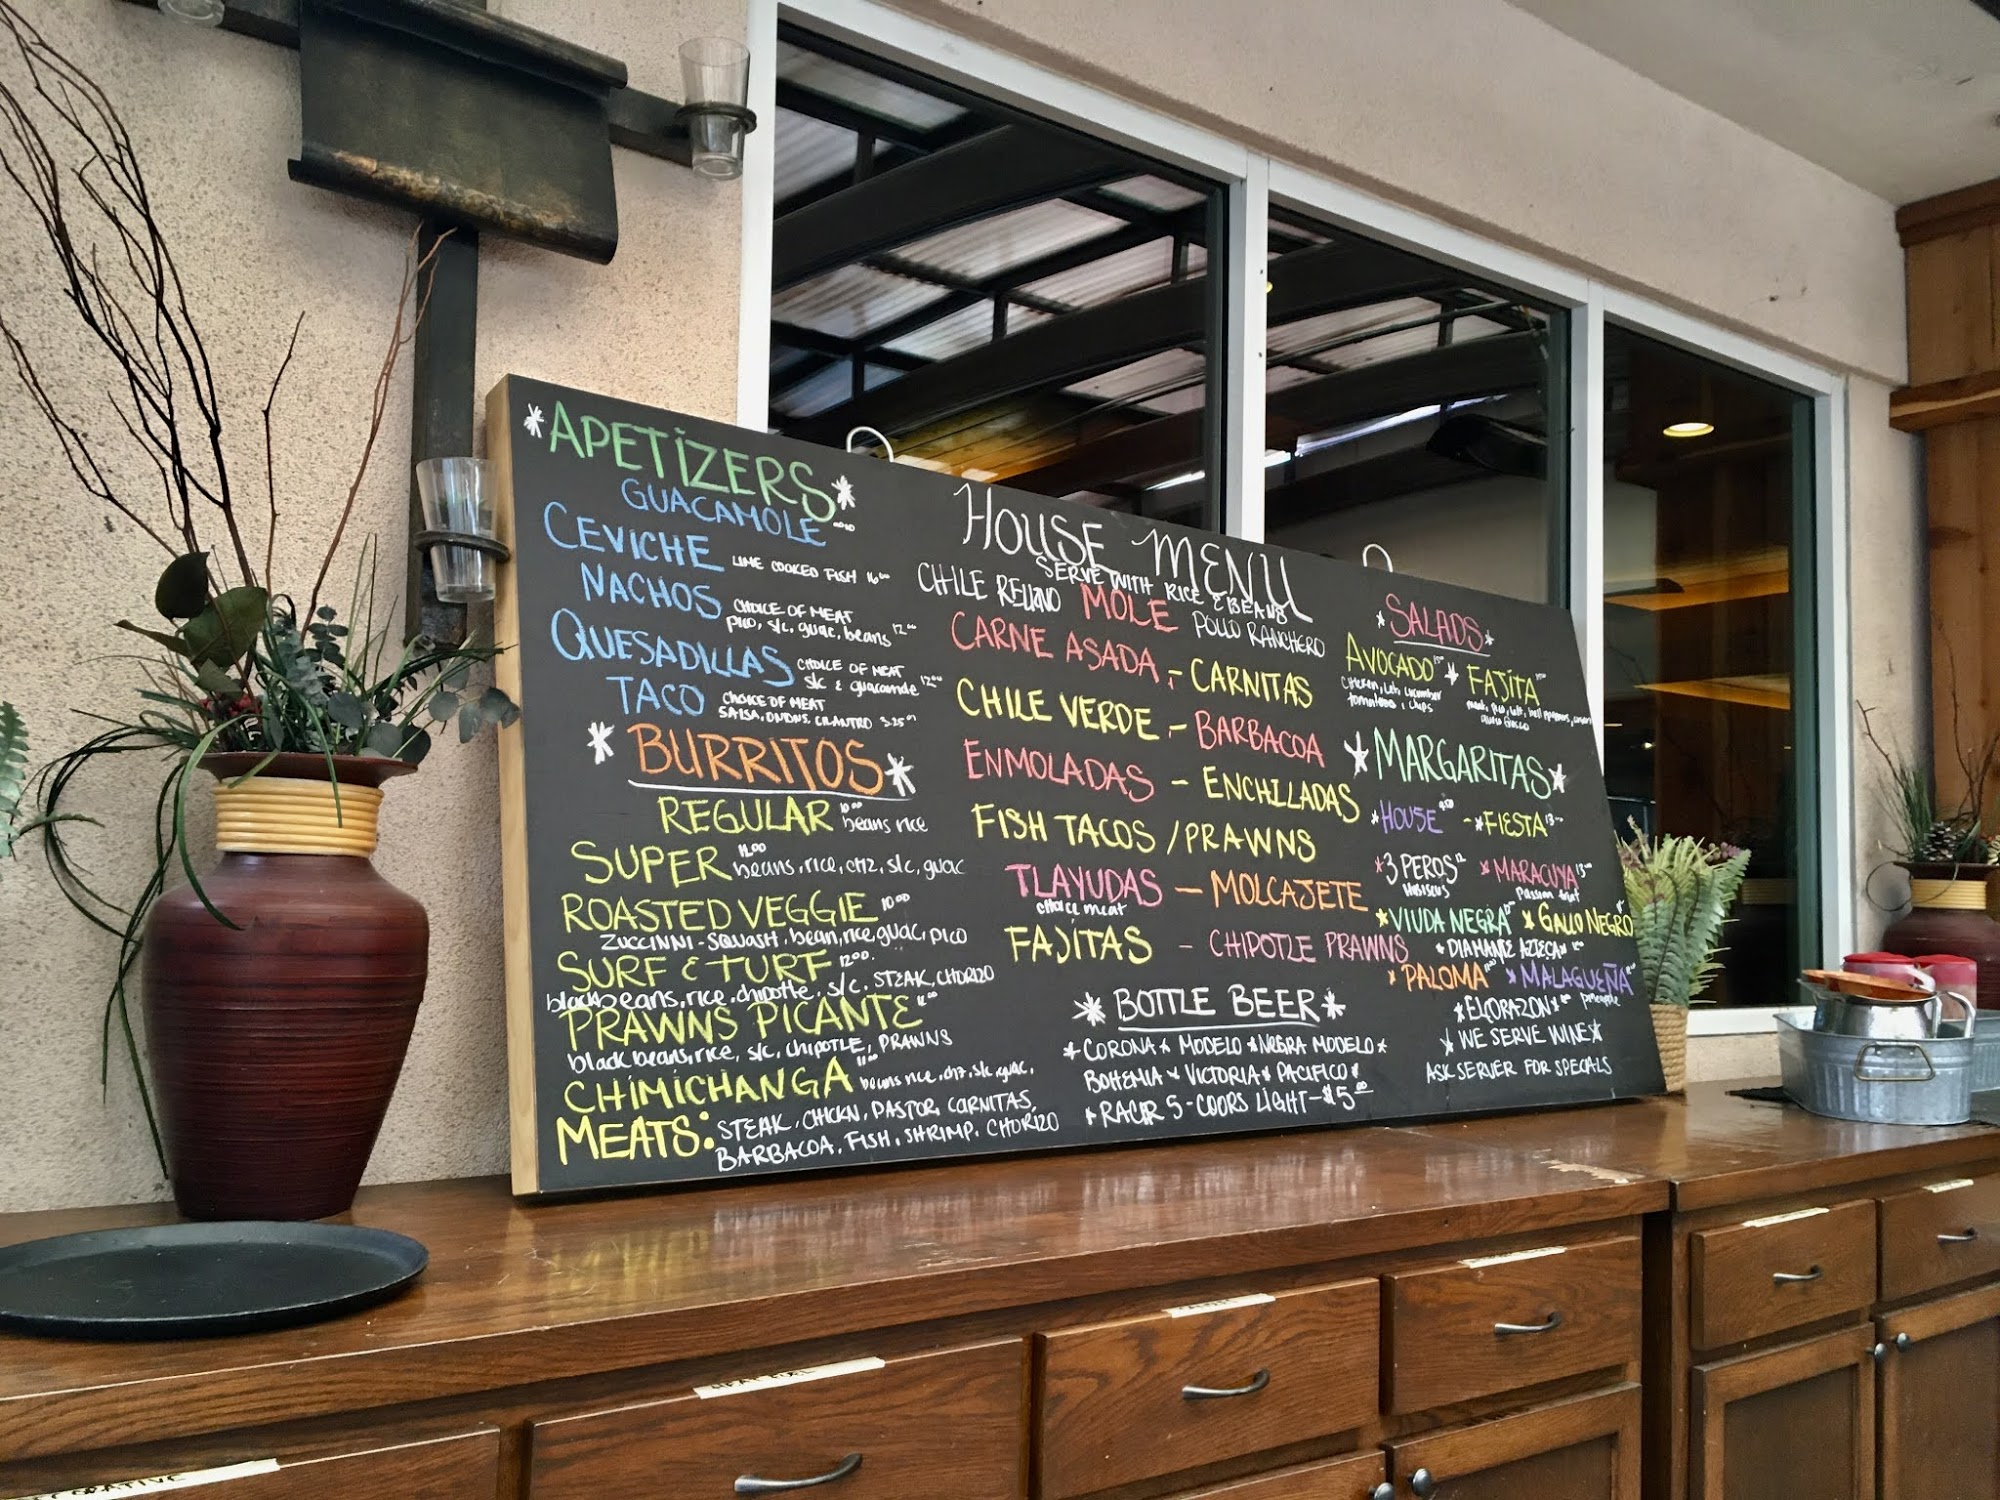 *APETIZERS*
GUACAMOLE
CEVICHE LIME COOKED FISH 16.00
NACHOS CHOICE OF MEAT
pico, s/c, guac, beans 12.00
QUESADILLAS CHOICE OF MEAT
s/c & guacamole 12.00
TACO CHOICE OF MEAT
SALSA, ONIONS, CILANTRO 3.25
*BURRITOS*
REGULAR 10.00 beans rice
SUPER 12.00 beans, rice, chz, s/c, guac
ROASTED VEGGIE 10.00
ZUCCINNI - SQUASH, bean, rice, guac, pico
SURF & TURF 12.00
black beans, rice, chipotle, s/c, STEAK, CHORIZO
PRAWNS PICANTE 12.00
black beans, rice, s/c, CHIPOTLE, PRAWNS
CHIMICHANGA 11.00 beans rice, chz, s/c, guac,
MEATS: STEAK, CHICKN, PASTOR, CARNITAS,
BARBACOA, FISH, SHRIMP, CHORIZO
HOUSE MENU
SERVE WITH RICE & BEANS
CHILE RELLENO MOLE POLLO RANCHERO
CARNE ASADA - CARNITAS
CHILE VERDE - BARBACOA
ENMOLADAS - ENCHILADAS
FISH TACOS / PRAWNS
TLAYUDAS - MOLCAJETE
choice meat
FAJÍTAS - CHIPOTLE PRAWNS
*BOTTLE BEER*
*CORONA * MODELO * NEGRA MODELO *
BOHEMIA * VICTORIA * PACIFICO *
*RACER 5 - COORS LIGHT - $5.00
*SALADS*
AVOCADO * FAJÍTA
chicken, let, cucumber
tomatoes, chips
*MARGARITAS*
*HOUSE 9.50 - *FIESTA 13
*3 PEROS 12 * MARACUYA 13
HIBISCUS Passion fruit
*VIUDA NEGRA * GALLO NEGRO
*DIAMANTE AZTECA*
*PALOMA * MALAGUEÑA
pineapple
*ELCORAZON*
* WE SERVE WINE *
ASK SERVER FOR SPECIALS